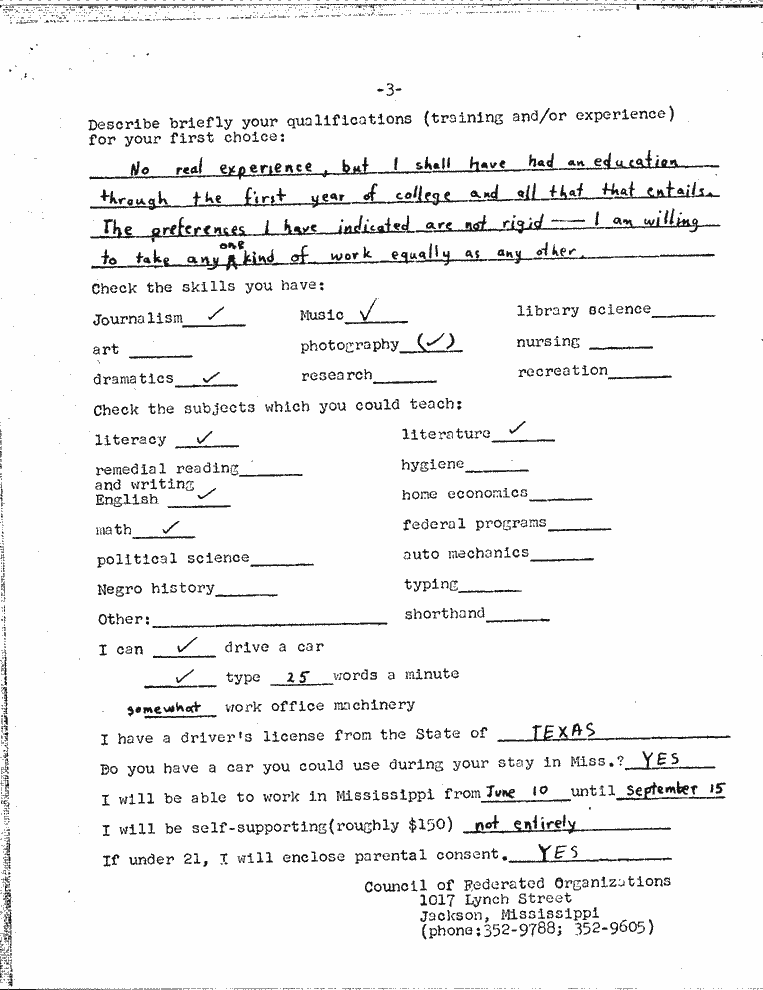 -3-
Describe briefly your qualifications (training and/or experience)
for your first choice:
No real experience, but I shall have had an education
through the first year of college and all that that entails.
The preferences I have indicated are not rigid — I am willing
to take any one kind of work equally as any other.
Check the skills you have:
Journalism ✓ Music ✓ library science
art photography (✓) nursing
dramatics ✓ research recreation
Check the subjects which you could teach:
literacy ✓ literature ✓
remedial reading hygiene
and writing
English ✓ home economics
math ✓ federal programs
political science auto mechanics
Negro history typing
Other: shorthand
I can ✓ drive a car
✓ type 25 words a minute
somewhat work office machinery
I have a driver's license from the State of TEXAS
Do you have a car you could use during your stay in Miss.? YES
I will be able to work in Mississippi from June 10 until September 15
I will be self-supporting(roughly $150) not entirely
If under 21, I will enclose parental consent. YES
Council of Federated Organizations
1017 Lynch Street
Jackson, Mississippi
(phone:352-9788; 352-9605)